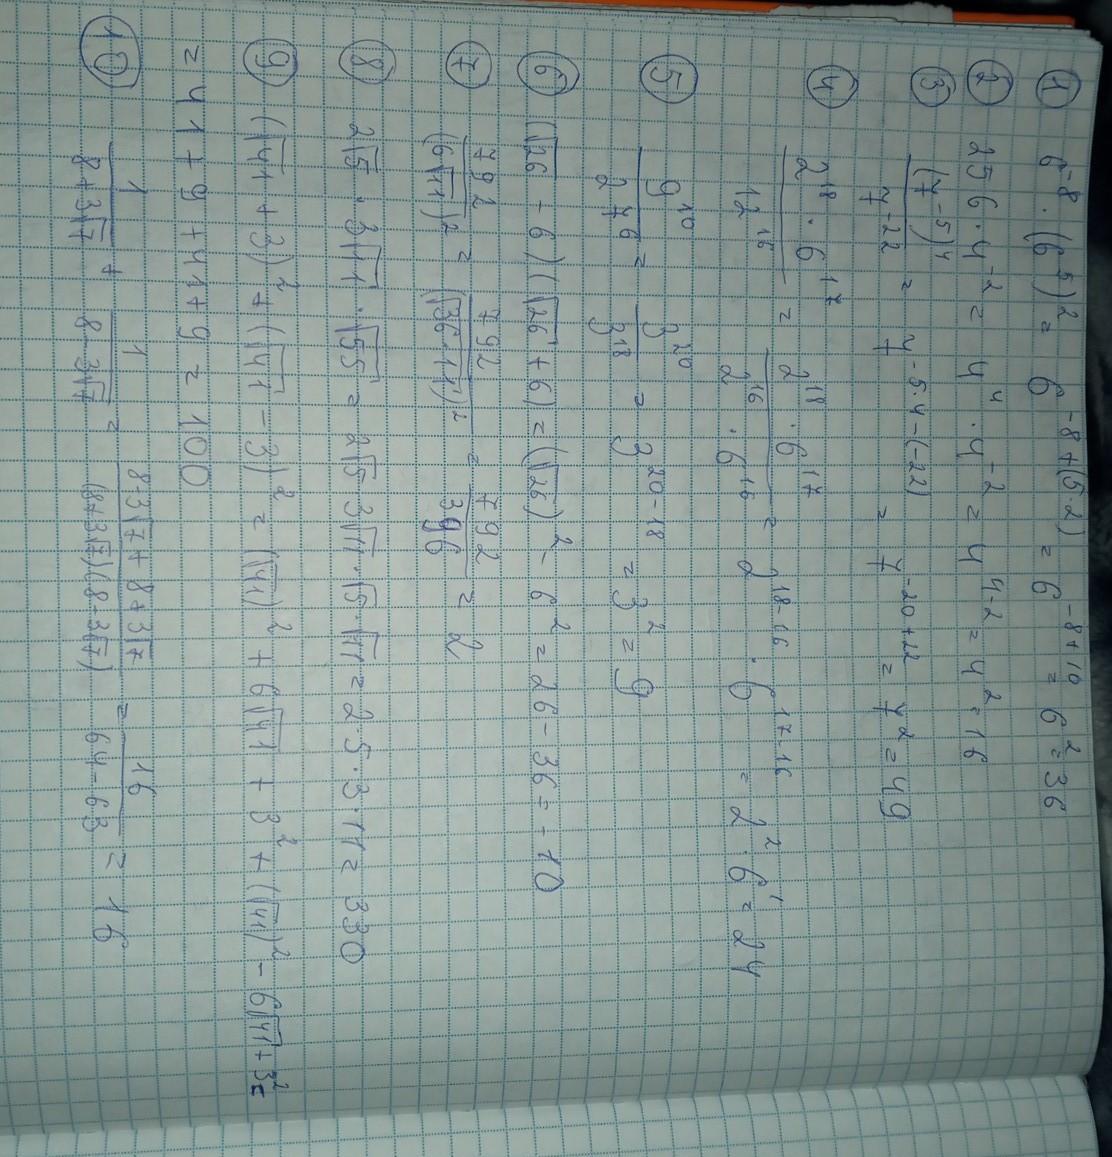 ① 6⁻⁸ · (6⁵)² = 6^(-8+(5·2)) = 6^(-8+10) = 6² = 36
② 256 · 4⁻² = 4⁴ · 4⁻² = 4^(4-2) = 4² = 16
③ (7⁻⁵)⁴ / 7⁻²² = 7^(-5·4-(-22)) = 7^(-20+22) = 7² = 49
④ 2¹⁸ · 6¹⁷ / 12¹⁶ = 2¹⁸ · 6¹⁷ / 2¹⁶ · 6¹⁶ = 2^(18-16) · 6^(17-16) = 2² · 6¹ = 24
⑤ 9¹⁰ / 27⁶ = 3²⁰ / 3¹⁸ = 3^(20-18) = 3² = 9
⑥ (√26 - 6)(√26 + 6) = (√26)² - 6² = 26 - 36 = -10
⑦ 792 / (6√11)² = 792 / (√36·11)² = 792 / 396 = 2
⑧ 2√5 · 3√11 · √55 = 2√5 · 3√11 · √5 · √11 = 2 · 5 · 3 · 11 = 330
⑨ (√41 + 3)² + (√41 - 3)² = (√41)² + 6√41 + 3² + (√41)² - 6√41 + 3² =
= 41 + 9 + 41 + 9 = 100
⑩ 1 / 8+3√7 + 1 / 8-3√7 = 8-3√7+8+3√7 / (8+3√7)(8-3√7) = 16 / 64-63 = 16